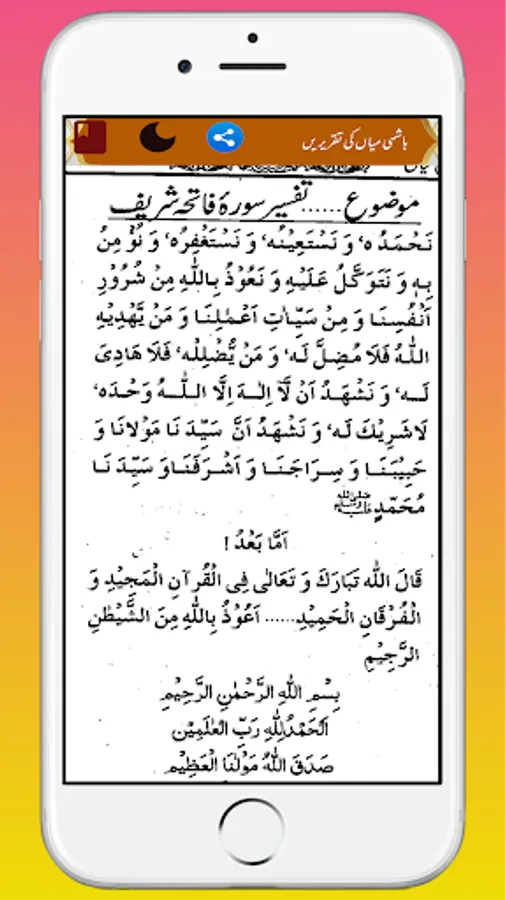 ہاشمی میاں کی تقریریں
موضوع ...... تفسیر سورۂ فاتحہ شریف
نَحْمَدُہ‘ وَ نَسْتَعِیْنُہ‘ وَ نَسْتَغْفِرُہ‘ وَ نُؤْ مِنُ
بِہٖ وَ نَتَوَکَّلُ عَلَیْہِ وَ نَعُوْذُ بِاللّٰہِ مِنْ شُرُوْرِ
اَنْفُسِنَا وَ مِنْ سَیِّاٰتِ اَعْمٰلِنَا وَ مَنْ یَّھْدِیْہِ
اللّٰہُ فَلَا مُضِلَّ لَہ‘ وَ مَنْ یُّضْلِلْہ‘ فَلَا ھَادِیَ
لَہ‘ وَ نَشْھَدُ اَنْ لَّآ اِلٰہَ اِلَّا اللّٰہُ وَحْدَہ‘
لَا شَرِیْکَ لَہ‘ وَ نَشْھَدُ اَنَّ سَیِّدَ نَا مَوْلَانَا وَ
حَبِیْبَنَا وَ سِرَاجَنَا وَ اَشْرَفَنَا وَ سَیِّدَ نَا
مُحَمَّدٍ ﷺ
اَمَّا بَعْدُ !
قَالَ اللّٰہ تَبَارَکَ وَ تَعَالٰی فِی الْقُرآنِ الْمَجِیْدِ وَ
الْفُرْقَانِ الْحَمِیْدِ...... اَعُوْذُ بِاللّٰہِ مِنَ الشَّیْطٰنِ
الرَّجِیْمِ
بِسْمِ اللّٰہِ الرَّحْمٰنِ الرَّحِیْمِ
اَلْحَمْدُلِلّٰہِ رَبِّ الْعٰلَمِیْن
صَدَقَ اللّٰہُ مَوْلٰنَا الْعَظِیْم